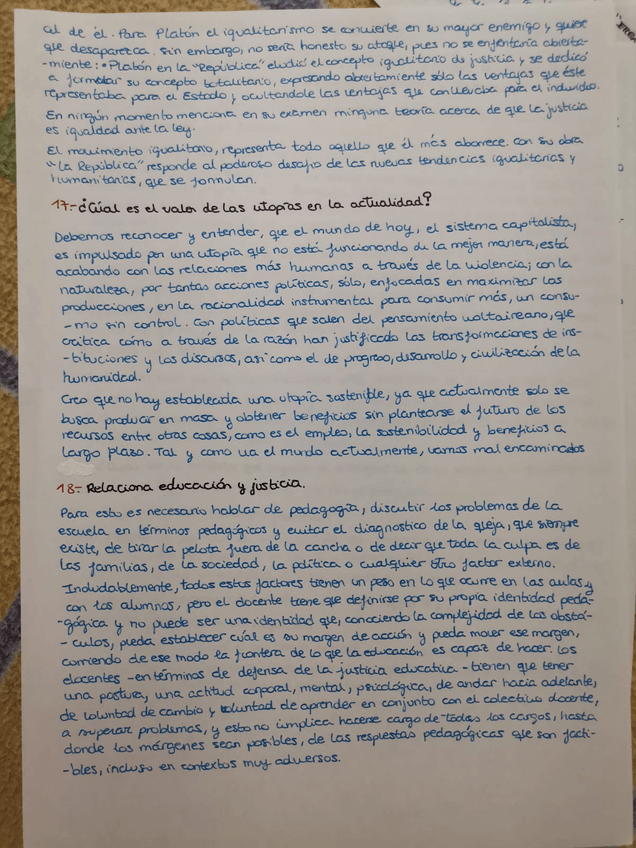 al de él. Para Platón el igualitarismo se convierte en su mayor enemigo y quiere
que desaparezca. Sin embargo, no sería honesto su ataque, pues no se enfrentaría abierta-
-miente: "Platón en la "República" eludió el concepto igualitario de justicia y se dedicó
a formular su concepto totalitario, expresando abiertamente sólo las ventajas que éste
representaba para el Estado y ocultandole las ventajas que conllevaba para el individuo.
En ningún momento menciona en su examen ninguna teoría acerca de que la justicia
es igualdad ante la ley.
El movimiento igualitario, representa todo aquello que él más aborrece. Con su obra
"La República" responde al poderoso desafío de las nuevas tendencias igualitarias y
humanitarias, que se formulan.
17.- ¿Cúal es el valor de las utopías en la actualidad?
Debemos reconocer y entender, que el mundo de hoy, el sistema capitalista,
es impulsado por una utopía que no está funcionando de la mejor manera, está
acabando con las relaciones más humanas a través de la violencia; con la
naturaleza, por tantas acciones políticas, sólo, enfocadas en maximizar las
producciones, en la racionalidad instrumental para consumir más, un consu-
-mo sin control. Con políticas que salen del pensamiento voltaireano, que
critica cómo a través de la razón han justificado las transformaciones de ins-
-tituciones y los discursos, así como el de progreso, desarrollo y civilización de la
humanidad.
Creo que no hay establecida una utopía sostenible, ya que actualmente solo se
busca producir en masa y obtener beneficios sin plantearse el futuro de los
recursos entre otras cosas, como es el empleo, la sostenibilidad y beneficios a
largo plazo. Tal y como va el mundo actualmente, vamos mal encaminados
18.- Relaciona educación y justicia.
Para esto es necesario hablar de pedagogía, discutir los problemas de la
escuela en términos pedagógicos y evitar el diagnostico de la queja, que siempre
existe, de tirar la pelota fuera de la cancha o de decir que toda la culpa es de
las familias, de la sociedad, la política o cualquier otro factor externo.
Indudablemente, todos estos factores tienen un peso en lo que ocurre en las aulas y
con los alumnos, pero el docente tiene que definirse por su propia identidad peda-
-gógica y no puede ser una identidad que, conociendo la complejidad de los obstá-
-culos, pueda establecer cuál es su margen de acción y pueda mover ese margen,
corriendo de ese modo la frontera de lo que la educación es capaz de hacer. Los
docentes -en términos de defensa de la justicia educativa- tienen que tener
una postura, una actitud corporal, mental, psicológica, de andar hacia adelante,
de voluntad de cambio y voluntad de aprender en conjunto con el colectivo docente,
a superar problemas, y esto no implica hacerse cargo de todos los cargos, hasta
donde los márgenes sean posibles, de las respuestas pedagógicas que son facti-
-bles, incluso en contextos muy adversos.